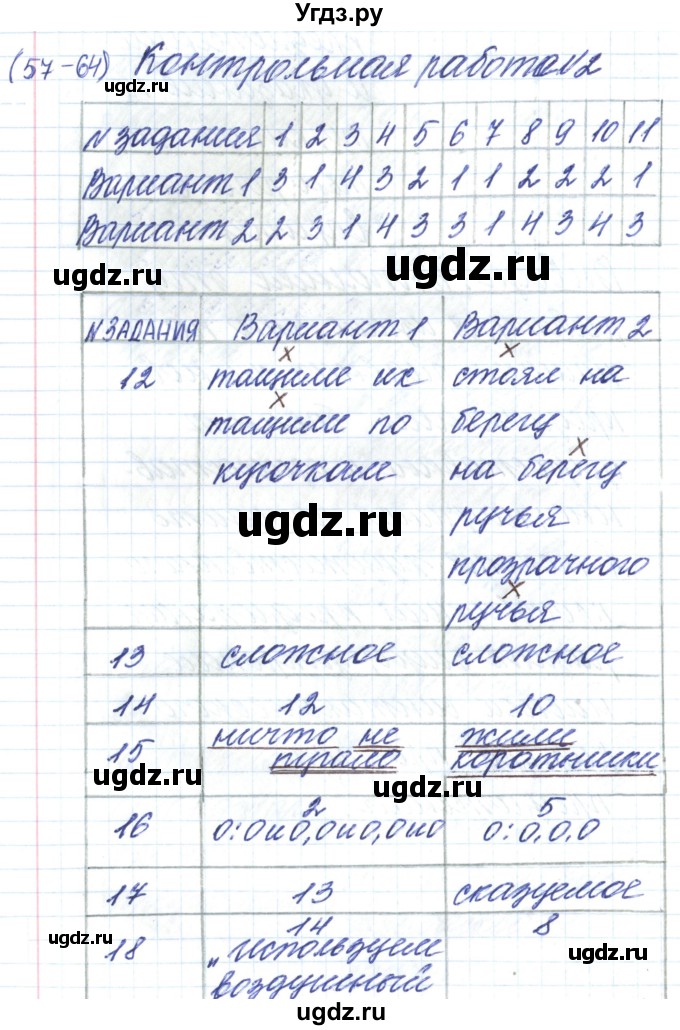 Угдз.ру
(57-64) Контрольная работа №2
№ задания 1 2 3 4 5 6 7 8 9 10 11
Вариант 1 3 1 4 3 2 1 1 2 2 2 1
Вариант 2 2 3 1 4 3 3 1 4 3 4 3
ugdz.ru ugdz.ru
№ ЗАДАНИЯ Вариант 1 Вариант 2
х х
12 тащили их стоял на
х
тащили по берегу
х
кусочкам на берегу
ugdz.ru
ручья
прозрачного
х
ручья
13 сложное сложное
ugdz.ru
14 12 10
15 ничто не жили
пугало коротышки
ugdz.ru ugdz.ru
2 5
16 О:ОиО,ОиО,ОиО О:О,О,О
17 13 сказуемое
ugdz.ru
14 8
18 „Используем
воздушный
ugdz.ru
Угдз.ру